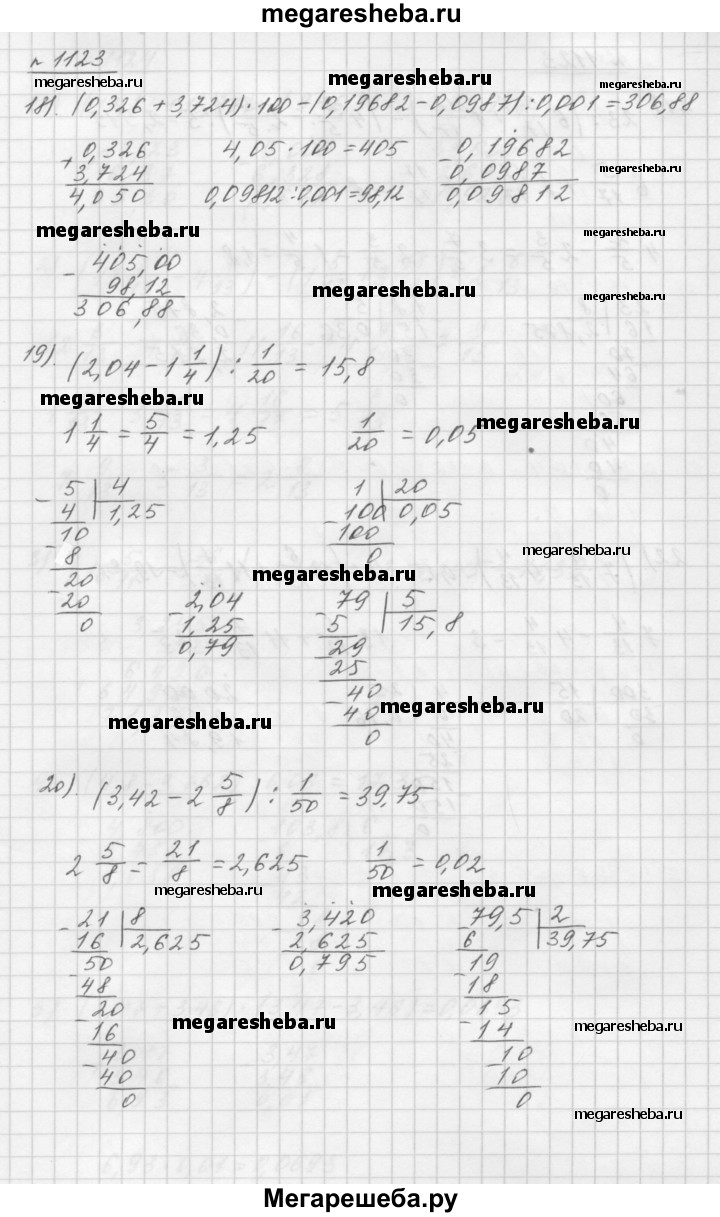 megaresheba.ru
№ 1123
megaresheba.ru megaresheba.ru megaresheba.ru
18). (0,326 + 3,724) · 100 - (0,19682 - 0,0987) : 0,001 = 306,88
+ 0,326 4,05 · 100 = 405 - 0,19682
3,724 0,0987 megaresheba.ru
4,050 0,09812 : 0,001 = 98,12 0,09812
megaresheba.ru megaresheba.ru
- 405,00
98,12 megaresheba.ru
306,88
19). (2,04 - 1 1/4) : 1/20 = 15,8
megaresheba.ru megaresheba.ru
1 1/4 = 5/4 = 1,25 1/20 = 0,05
- 5 | 4 1 | 20
4 | 1,25 - 100 | 0,05
10 100
- 8 0 megaresheba.ru
20 megaresheba.ru
- 20 - 2,04 - 79 | 5
0 1,25 5 | 15,8
0,79 - 29
25
- 40
megaresheba.ru 40 megaresheba.ru
0
20). (3,42 - 2 5/8) : 1/50 = 39,75
2 5/8 = 21/8 = 2,625 1/50 = 0,02
megaresheba.ru megaresheba.ru
- 21 | 8 - 3,420 - 79,5 | 2
16 | 2,625 2,625 6 | 39,75
50 0,795 - 19
- 48 18
20 15
- 16 megaresheba.ru - 14 megaresheba.ru
- 40 - 10
40 10
0 0
megaresheba.ru
Мегарешеба.ру